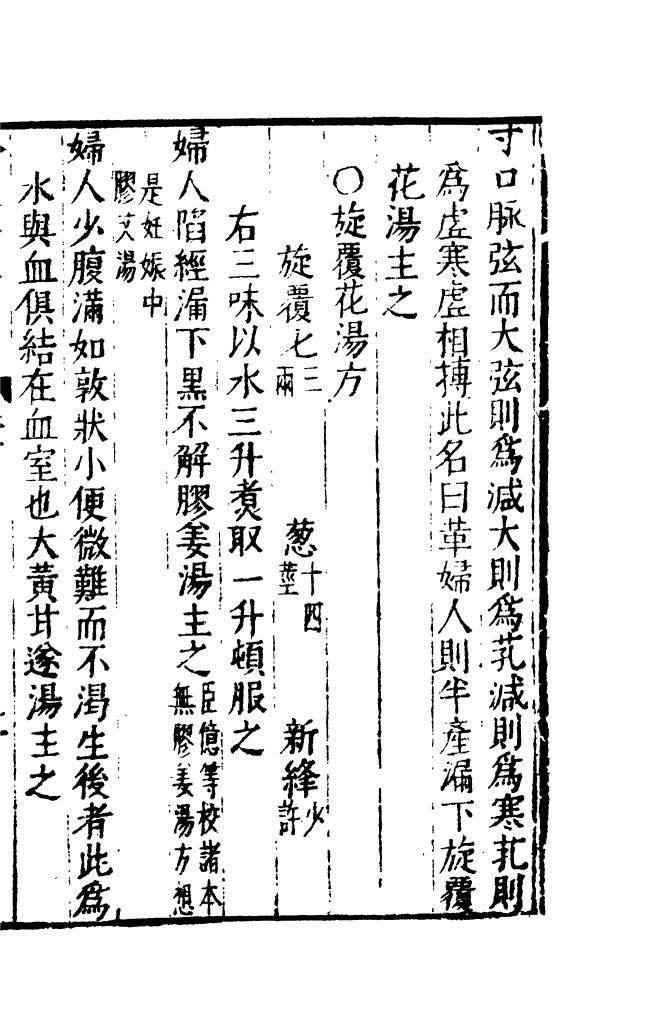 寸口脉弦而大弦則爲减大則爲芤减則爲寒芤則
爲虛寒虛相搏此名曰革婦人則半產漏下旋覆
花湯主之
○旋覆花湯方
旋覆七三兩　葱十四莖　新絳少許
右三味以水三升煑取一升頓服之
婦人陷經漏下黑不解膠姜湯主之臣億等校諸本無膠姜湯方想
是妊娠中膠艾湯
婦人少腹滿如敦狀小便微難而不渴生後者此爲
水與血俱結在血室也大黃甘遂湯主之